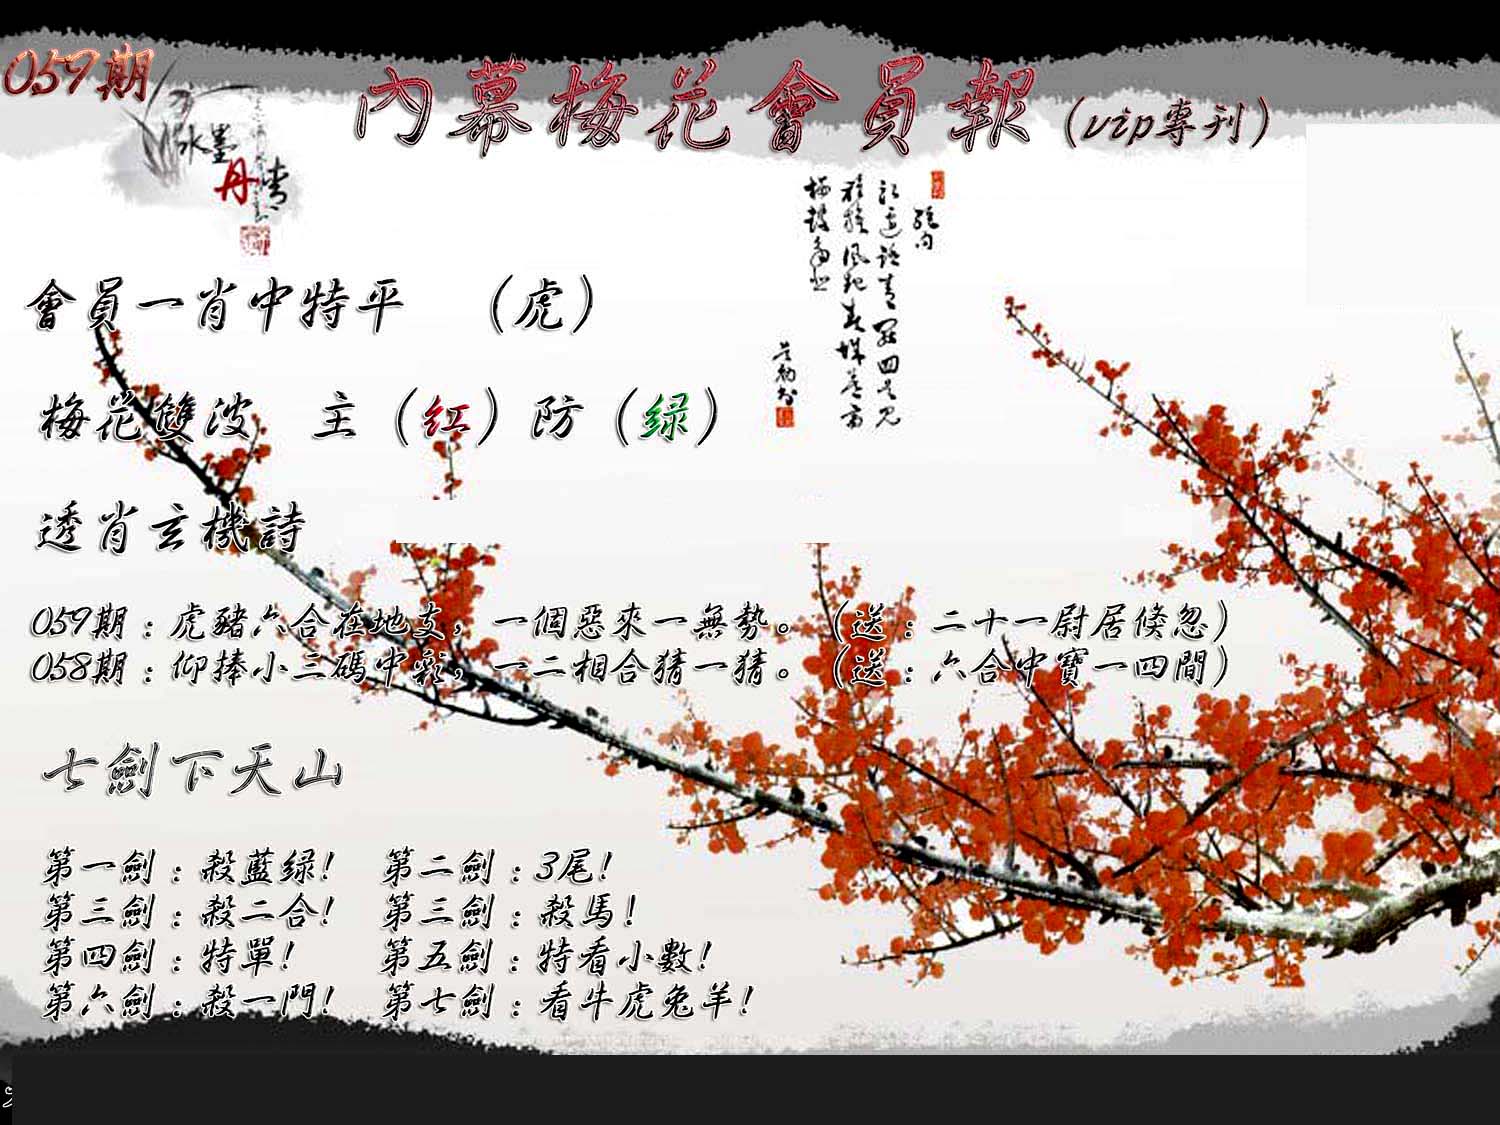 059期
內幕梅花會員報（vip專刊）
水墨
丹青
絕句
會員一肖中特平 （虎）
梅花雙波 主（红）防（绿）
透肖玄機詩
059期：虎豬六合在地支，一個惡來一無勢。（送：二十一尉居倏忽）
058期：仰捧小三碼中彩，一二相合猜一猜。（送：六合中寶一四間）
七劍下天山
第一劍：殺藍绿！ 第二劍：3尾！
第三劍：殺二合！ 第三劍：殺馬！
第四劍：特單！ 第五劍：特看小數！
第六劍：殺一門！ 第七劍：看牛虎兔羊！